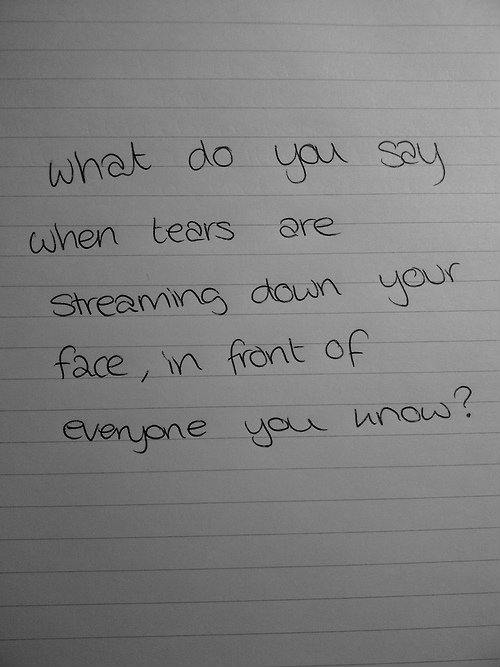 what do you say
when tears are
streaming down your
face, in front of
everyone you know?